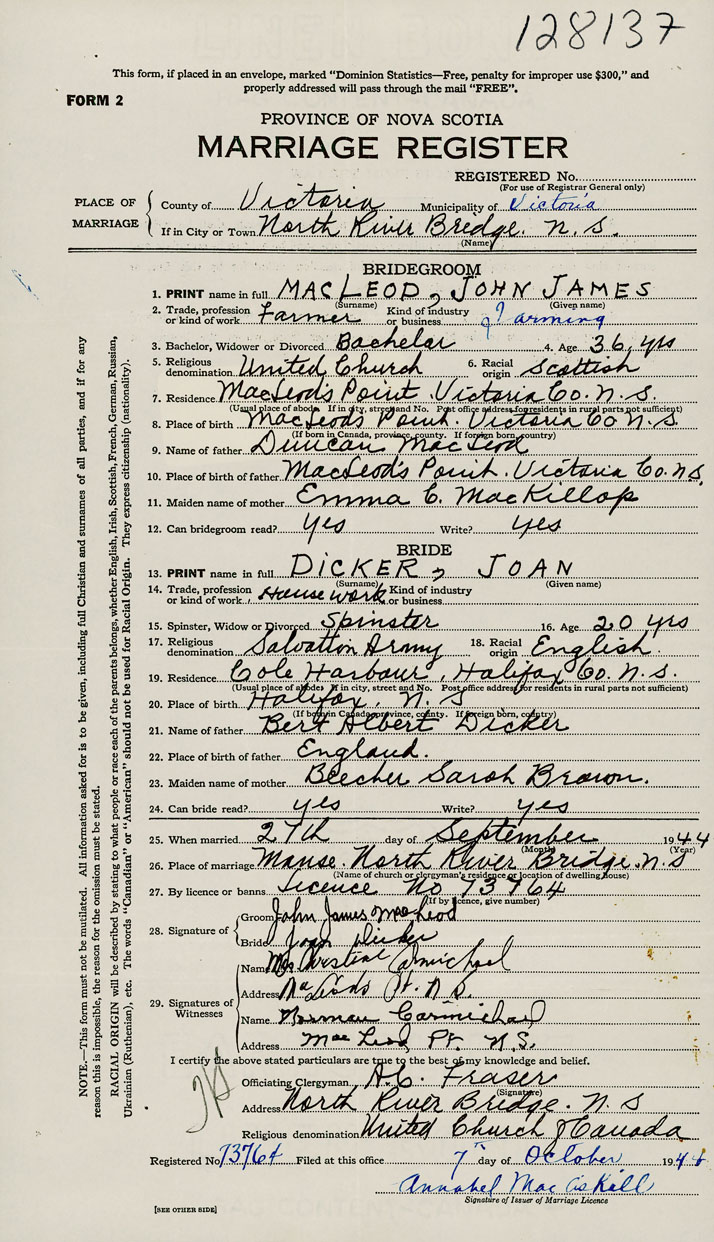 128137
This form, if placed in an envelope, marked "Dominion Statistics—Free, penalty for improper use $300," and
properly addressed will pass through the mail "FREE".
FORM 2
PROVINCE OF NOVA SCOTIA
MARRIAGE REGISTER
REGISTERED No.
(For use of Registrar General only)
PLACE OF MARRIAGE
County of Victoria Municipality of Victoria
If in City or Town North River Bridge. N.S.
(Name)
BRIDEGROOM
1. PRINT name in full MACLEOD, JOHN JAMES
(Surname) (Given name)
2. Trade, profession or kind of work Farmer Kind of industry or business Farming
3. Bachelor, Widower or Divorced Bachelor 4. Age 36 yrs
5. Religious denomination United Church 6. Racial origin Scottish
7. Residence MacLeod's Point. Victoria Co. N.S.
(Usual place of abode. If in city, street and No. Post office address for residents in rural parts not sufficient)
8. Place of birth MacLeod's Point. Victoria Co N.S.
(If born in Canada, province, county. If foreign born, country)
9. Name of father Duncan MacLeod
10. Place of birth of father MacLeod's Point. Victoria Co. N.S.
11. Maiden name of mother Emma C. MacKillop
12. Can bridegroom read? yes Write? yes
BRIDE
13. PRINT name in full DICKER, JOAN
(Surname) (Given name)
14. Trade, profession or kind of work House work Kind of industry or business
15. Spinster, Widow or Divorced Spinster 16. Age 20 yrs
17. Religious denomination Salvation Army 18. Racial origin English.
19. Residence Cole Harbour, Halifax Co. N.S.
(Usual place of abode. If in city, street and No. Post office address for residents in rural parts not sufficient)
20. Place of birth Halifax, N.S
(If born in Canada, province, county. If foreign born, country)
21. Name of father Bert Albert Dicker
22. Place of birth of father England.
23. Maiden name of mother Beecher Sarah Brown.
24. Can bride read? yes Write? yes
25. When married 27th day of September 1944
(Month) (Year)
26. Place of marriage Manse. North River Bridge. N.S
(Name of church or clergyman's residence or location of dwelling house)
27. By licence or banns Licence No 73764
(If by licence, give number)
28. Signature of
Groom John James MacLeod
Bride Joan Dicker
29. Signatures of Witnesses
Name Mrs. Carmichael
Address MacLeods Pt. N.S.
Name Norman Carmichael
Address MacLeod Pt. N.S.
I certify the above stated particulars are true to the best of my knowledge and belief.
Officiating Clergyman A.C. Fraser
(Signature)
Address North River Bridge. N.S
Religious denomination United Church of Canada
Registered No. 73764 Filed at this office 7th day of October 1944
Annabel MacAskill
Signature of Issuer of Marriage Licence
[SEE OTHER SIDE]
NOTE.—This form must not be mutilated. All information asked for is to be given, including full Christian and surnames of all parties, and if for any
reason this is impossible, the reason for the omission must be stated.
RACIAL ORIGIN will be described by stating to what people or race each of the parents belongs, whether English, Irish, Scottish, French, German, Russian,
Ukrainian (Ruthenian), etc. The words "Canadian" or "American" should not be used for Racial Origin. They express citizenship (nationality).